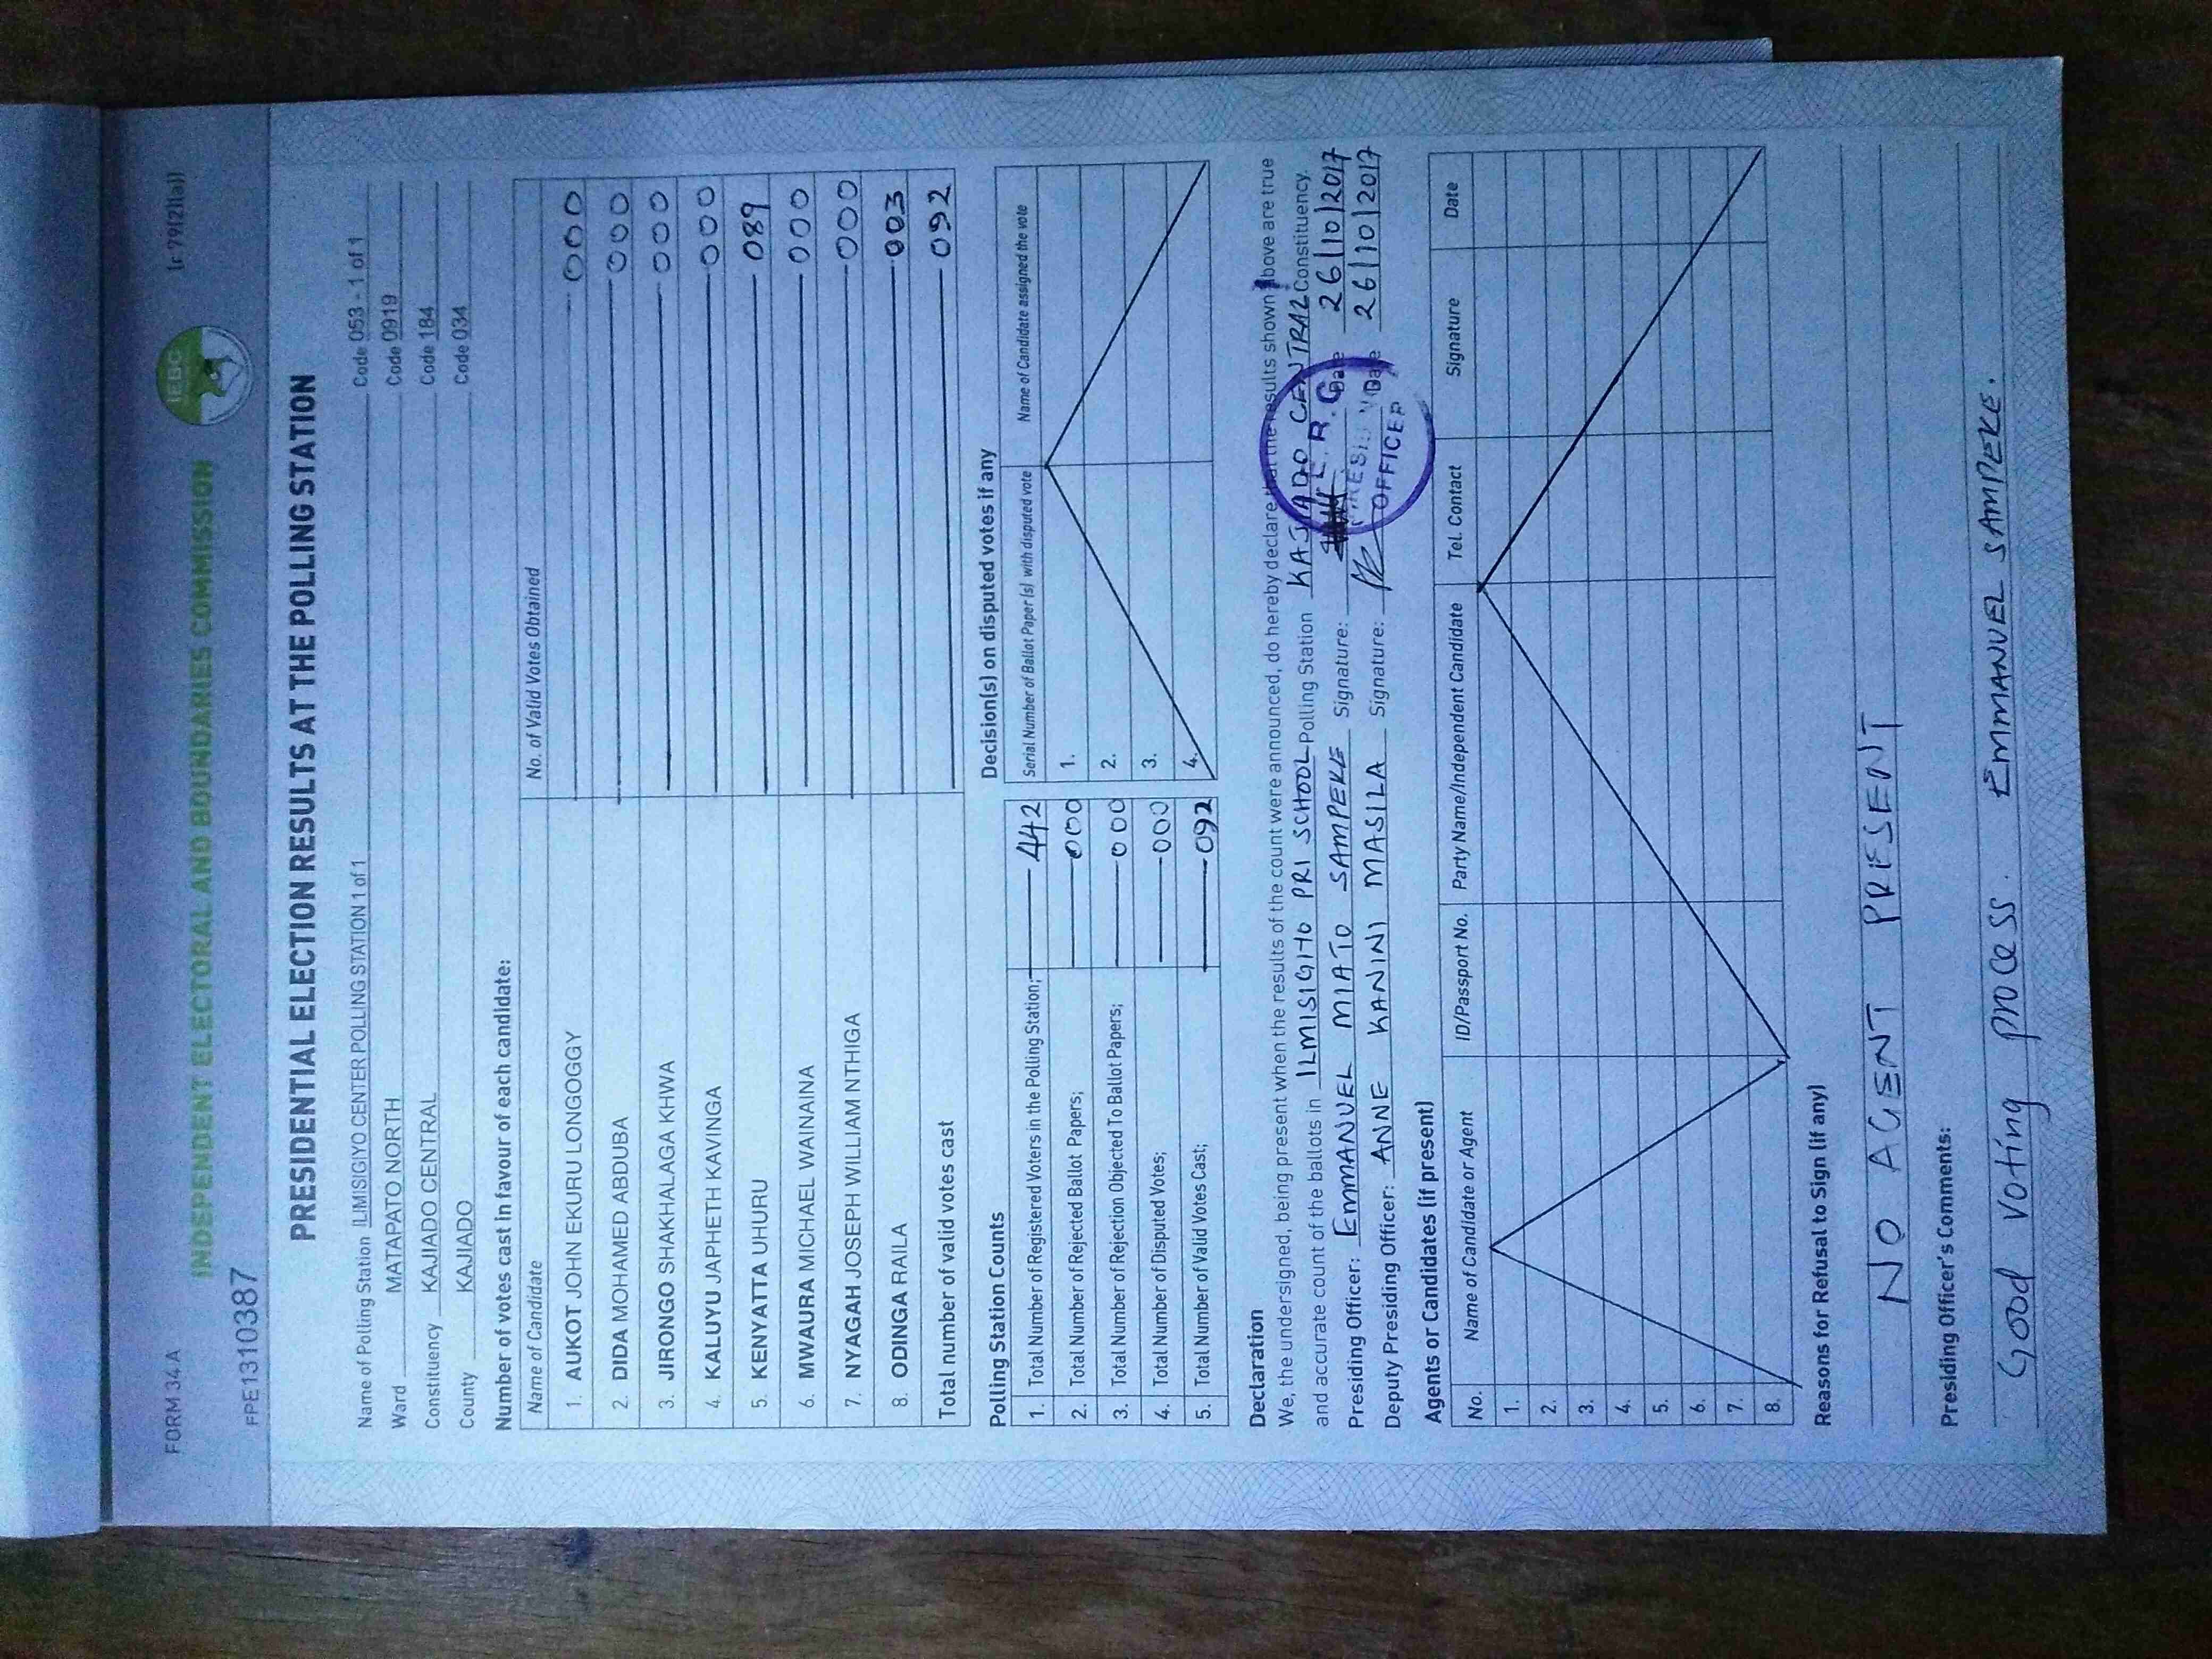 FORM 34 A
(r 79(2)(a))
IEBC
INDEPENDENT ELECTORAL AND BOUNDARIES COMMISSION
FPE1310387
PRESIDENTIAL ELECTION RESULTS AT THE POLLING STATION
Name of Polling Station ILMISIGIYO CENTER POLLING STATION 1 of 1 Code 053 - 1 of 1
Ward MATAPATO NORTH Code 0919
Constituency KAJIADO CENTRAL Code 184
County KAJIADO Code 034
Number of votes cast in favour of each candidate:
Name of Candidate No. of Valid Votes Obtained
1. AUKOT JOHN EKURU LONGOGGY 000
2. DIDA MOHAMED ABDUBA 000
3. JIRONGO SHAKHALAGA KHWA 000
4. KALUYU JAPHETH KAVINGA 000
5. KENYATTA UHURU 089
6. MWAURA MICHAEL WAINAINA 000
7. NYAGAH JOSEPH WILLIAM NTHIGA 000
8. ODINGA RAILA 003
Total number of valid votes cast 092
Polling Station Counts
1. Total Number of Registered Voters in the Polling Station; 442
2. Total Number of Rejected Ballot Papers; 000
3. Total Number of Rejection Objected To Ballot Papers; 000
4. Total Number of Disputed Votes; 000
5. Total Number of Valid Votes Cast; 092
Decision(s) on disputed votes if any
Serial Number of Ballot Paper (s) with disputed vote Name of Candidate assigned the vote
1.
2.
3.
4.
Declaration
We, the undersigned, being present when the results of the count were announced, do hereby declare that the results shown above are true
and accurate count of the ballots in ILMISIGIYO PRI SCHOOL Polling Station KAJIADO CENTRAL Constituency.
Presiding Officer: EMMANUEL MIATO SAMPEKE Signature: Date 26/10/2017
Deputy Presiding Officer: ANNE KANINI MASILA Signature: Date 26/10/2017
OFFICER
Agents or Candidates (if present)
No. Name of Candidate or Agent ID/Passport No. Party Name/Independent Candidate Tel. Contact Signature Date
1.
2.
3.
4.
5.
6.
7.
8.
Reasons for Refusal to Sign (if any)
NO AGENT PRESENT
Presiding Officer's Comments:
Good voting process. EMMANUEL SAMPEKE.